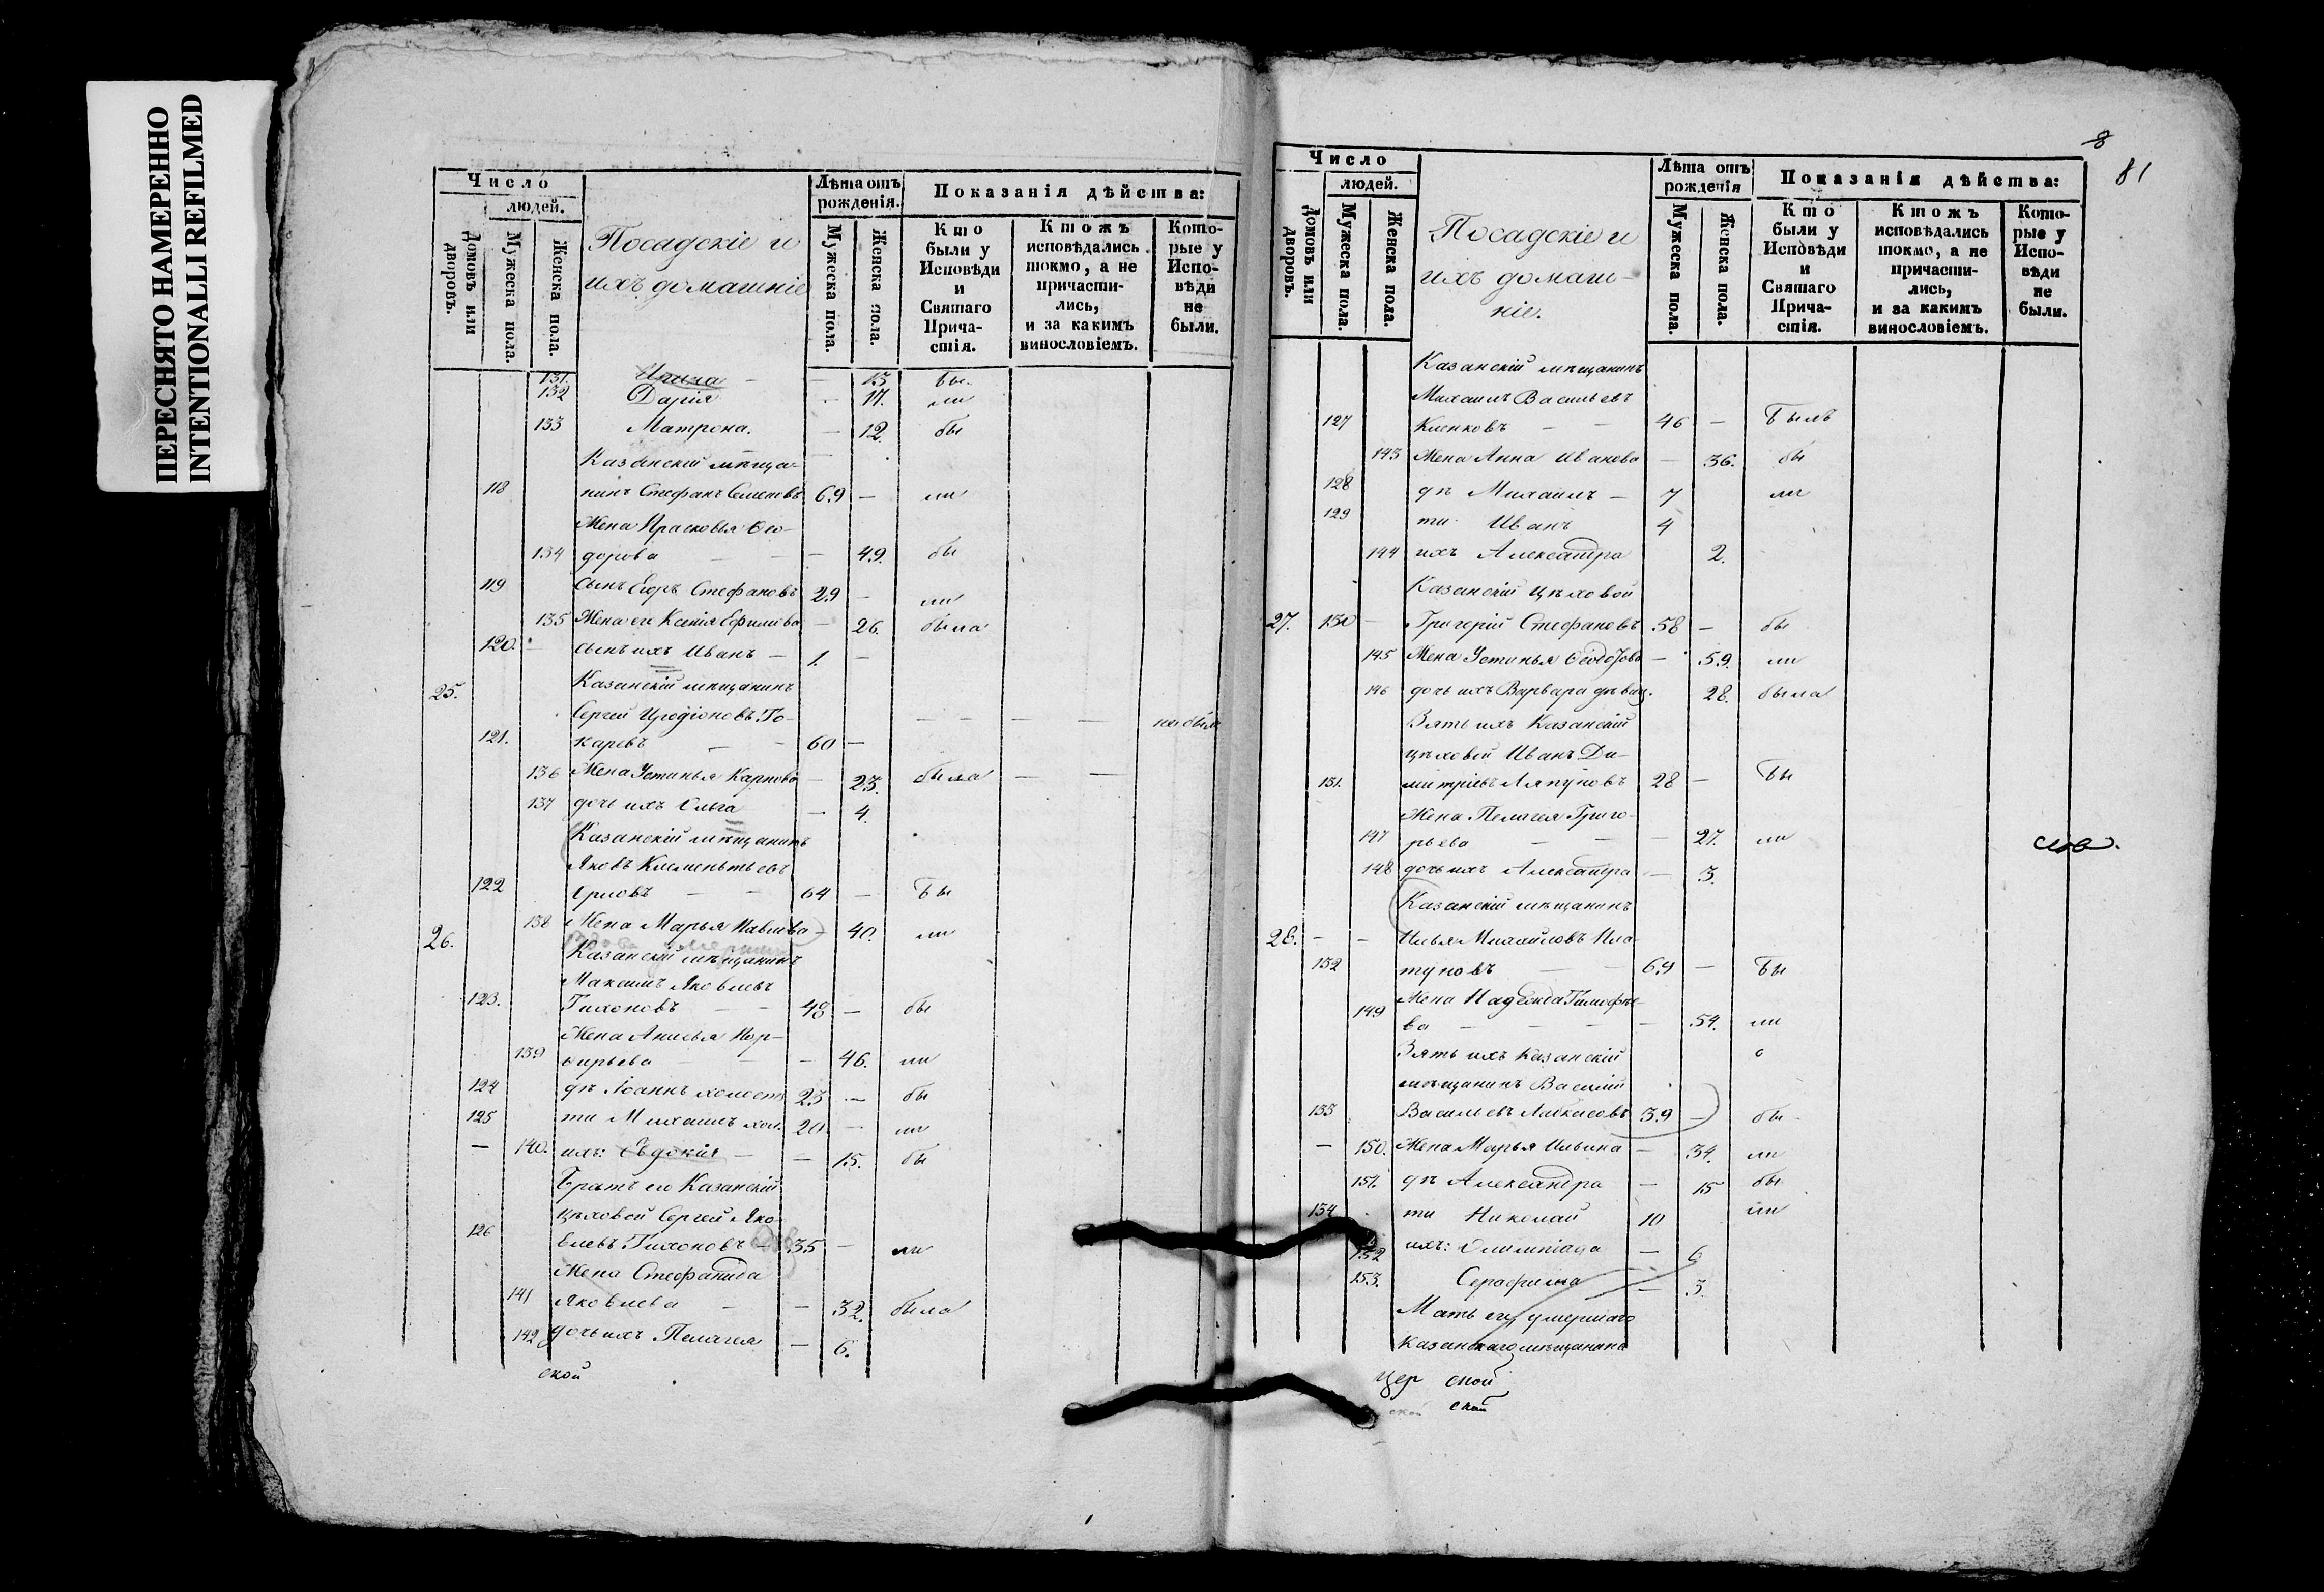 ПЕРЕСНЯТО НАМЕРЕННО
INTENTIONALLI REFILMED
Число
людей.
Домовъ или дворовъ.
Мужеска пола.
Женска пола.
Посадскіе и
ихъ домашніе
Лѣта отъ рожденія.
Мужеска пола.
Женска пола.
Показанія дѣйства:
Кто были у Исповѣди и Святаго Прича-стія.
Ктожъ исповѣдались токмо, а не причасти-лись, и за какимъ винословіемъ.
Кото-рые у Испо-вѣди не были.
131. Ирина — — 13 бы
132 Дарія - 17. ли
133 Матрона. — 12. бы
Казанскій мѣща-
118 нинъ Стефанъ Семеновъ 69 — ли
Жена Прасковья Ѳео-
134 дорова — — — 49. бы
119 Сынъ Егоръ Стефановъ 29 — ли
135 Жена его Ксенія Ефимова — 26. была
120. сынъ ихъ Иванъ — 1. —
25. Казанскій мѣщанинъ
Сергей Иродіоновъ То-
121. каревъ — — 60 — — — — — не былъ
136 Жена Устинья Карпова — 23. была — —
137 дочь ихъ Ольга — 4.
Казанскій мѣщанинъ
Яковъ Клементьевъ
122 Орловъ — — 64 — Бы
138 Жена Марья Павлова — 40. ли
26. Казанскій мѣщанинъ
Максимъ Яковлевъ
123. Тихоновъ — — 48 — бы
Жена Анисья Пор-
139 фирьева — 46. ли
124 дѣ Іоаннъ холостъ 23 — бы
125 ти Михаилъ хол. 20 — ли
— 140. ихъ: Евдокія — — 15. бы
Братъ его Казанскій
цѣховой Сергей Яко-
126 влевъ Тихоновъ — 35 — ли
Жена Стефанида
141 Яковлева — — 32. была
142 дочь ихъ Пелагея — 6.
ской
8
81
Число
людей.
Домовъ или дворовъ.
Мужеска пола.
Женска пола.
Посадскіе и
ихъ домаш-
ніе.
Лѣта отъ рожденія
Мужеска пола.
Женска пола.
Показанія дѣйства:
Кто были у Исповѣди и Святаго Прича-стія.
Ктожъ исповѣдались токмо, а не причасти-лись, и за какимъ винословіемъ.
Кото-рые у Испо-вѣди не были.
Казанскій мѣщанинъ
Михаилъ Васильевъ
127 Кленковъ — — 46 — Былъ
143 Жена Анна Иванова — 36. бы
128 дѣ Михаилъ — 7 ли
129 ти Иванъ 4
144 ихъ Александра 2.
Казанскій цѣховой
27. 130 — Григорій Стефановъ 58 — бы
145 Жена Устинья Ѳеодорова — 59. ли
146 дочь ихъ Варвара дѣвиц. 28. была
Зять ихъ Казанскій
цѣховой Иванъ Ди-
131. митріевъ Ляпуновъ 28 — Бы
Жена Пелагея Григо-
147 рьева — — — 27. ли
148 дочь ихъ Александра — 3.
слов.
Казанскій мѣщанинъ
28. — — Илья Михайловъ Пла-
132 туновъ — — 69 — Бы
Жена Надежда Тимофѣе-
149 ва — — — — 54. ли
Зять ихъ Казанскій
мѣщанинъ Василій
133 Васильевъ 39 — бы
— 150. Жена Марья Ильина — 34. ли
151. дѣ Александра — 15 бы
134 ти Николай 10 ли
152 ихъ: Олимпіада — 6
153. Серафима — 3.
Мать его, умершаго
Казанскаго мѣщанина
цер ской
ской ской